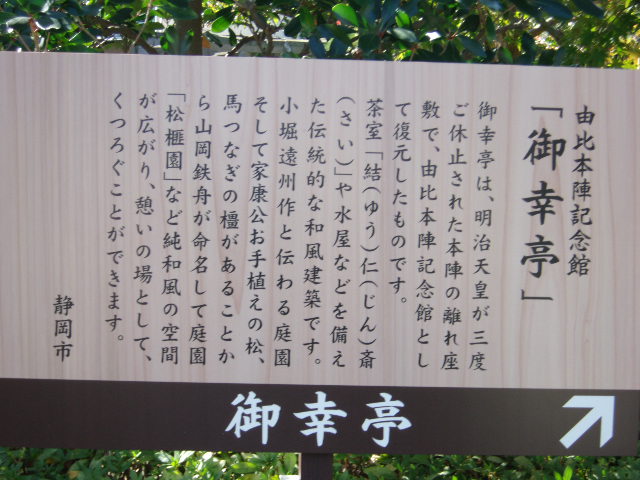 由比本陣記念館
「御幸亭」
御幸亭は、明治天皇が三度
ご休止された本陣の離れ座
敷で、由比本陣記念館とし
て復元したものです。
茶室「結(ゆう)仁(じん)斎
(さい)」や水屋などを備え
た伝統的な和風建築です。
小堀遠州作と伝わる庭園
そして家康公お手植えの松、
馬つなぎの橿があることか
ら山岡鉄舟が命名して庭園
「松榧園」など純和風の空間
が広がり、憩いの場として、
くつろぐことができます。
静岡市
御幸亭